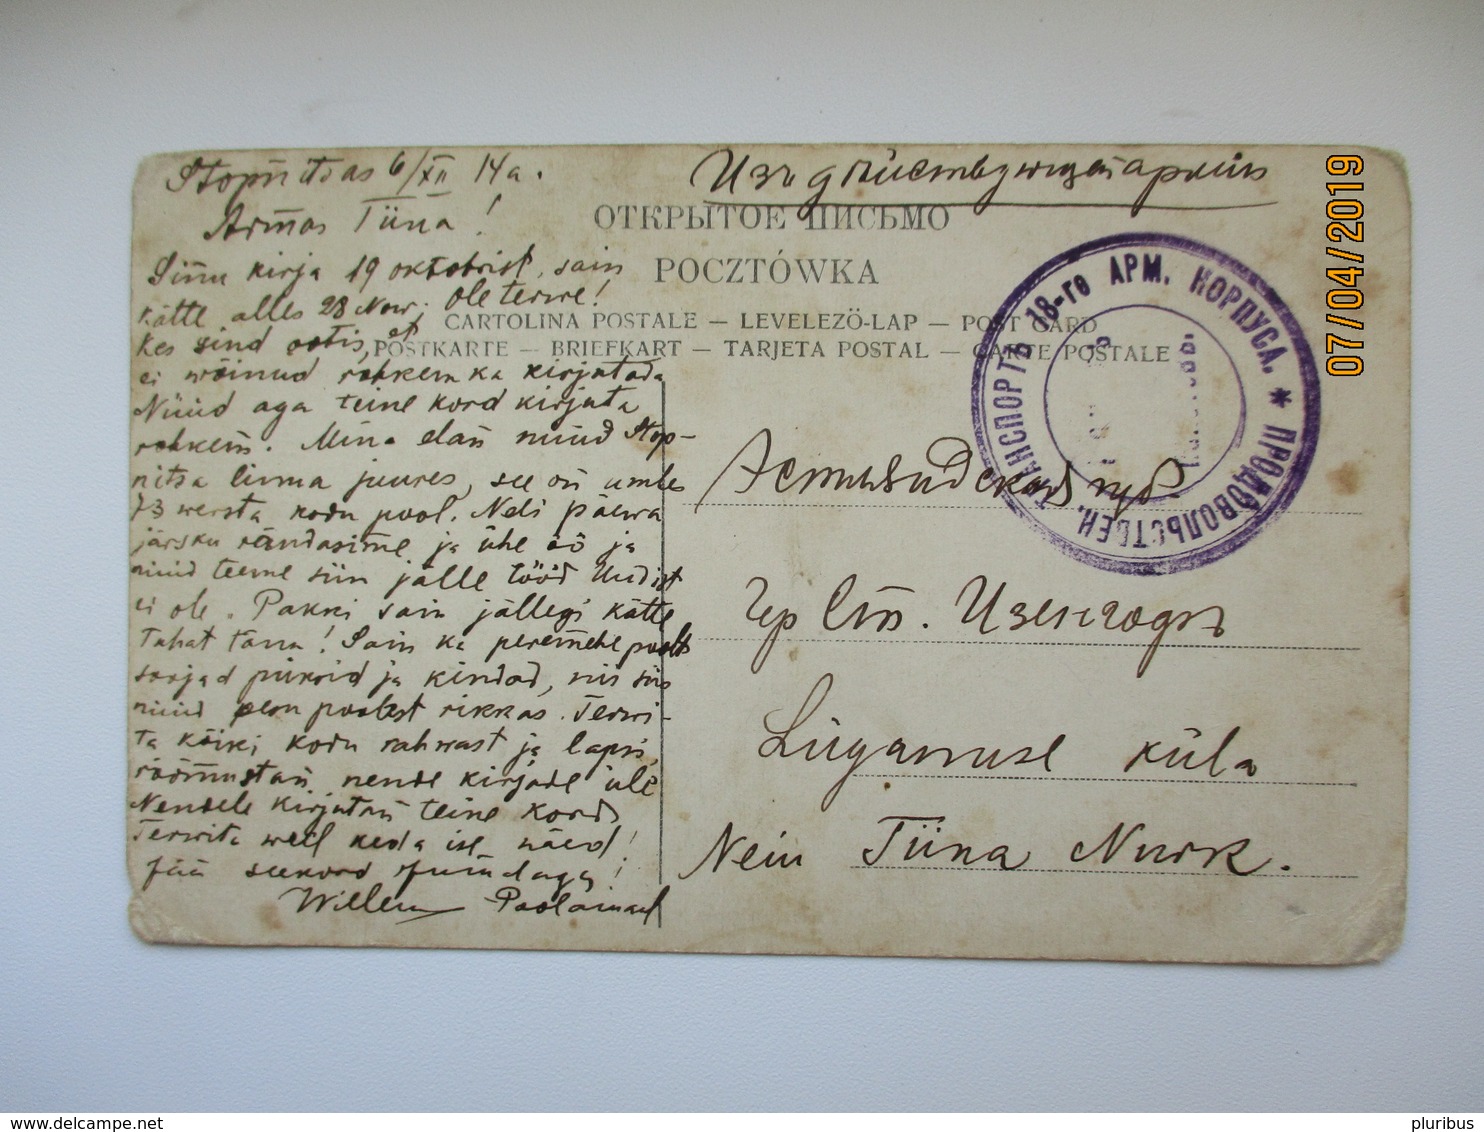 Stopnitsas 6/XII 14a.
Armas Tiina!
Sinu kirja 19 oktobrist, sain
kätte alles 28 Now. Ole terwe!
kes sind ootis, et
ei wõinud rohkem ka kirjutada
Nüüd aga teine kord kirjuta
rohkem. Mina elan nüüd Stop-
nitsa linna juures, see on umbes
73 wersta kodu pool. Neli päewa
järsku rändasime ja ühe öö ja
nüüd teeme siin jälle tööd Uudist
ei ole. Pakki sain jällegi kätte
tahat tänu! Sain ka peremehe poolt
soojad püksid ja kindad, nii siis
nüüd pesu poolest rikkas. Terwi-
ta kõiki kodu rahwast ja lapsi,
rõõmustan nende kirjade üle
Nendele kirjutan teine kord
Terwita weel keda ise näed!
Jää seekord Jumalaga!
Willem
Изъ действующей армiи
ОТКРЫТОЕ ПИСЬМО
POCZTÓWKA
CARTOLINA POSTALE — LEVELEZÖ-LAP — POST CARD
POSTKARTE — BRIEFKART — TARJETA POSTAL — CARTE POSTALE
ПРОДОВОЛЬСТВЕН. ТРАНСПОРТЪ 18-го АРМ. КОРПУСА. *
Эстляндская губ
чр Ст. Изенгофъ
Lüganuse küla
Nein Tiina Nurk.
07/04/2019
pluribus
www.delcampe.net